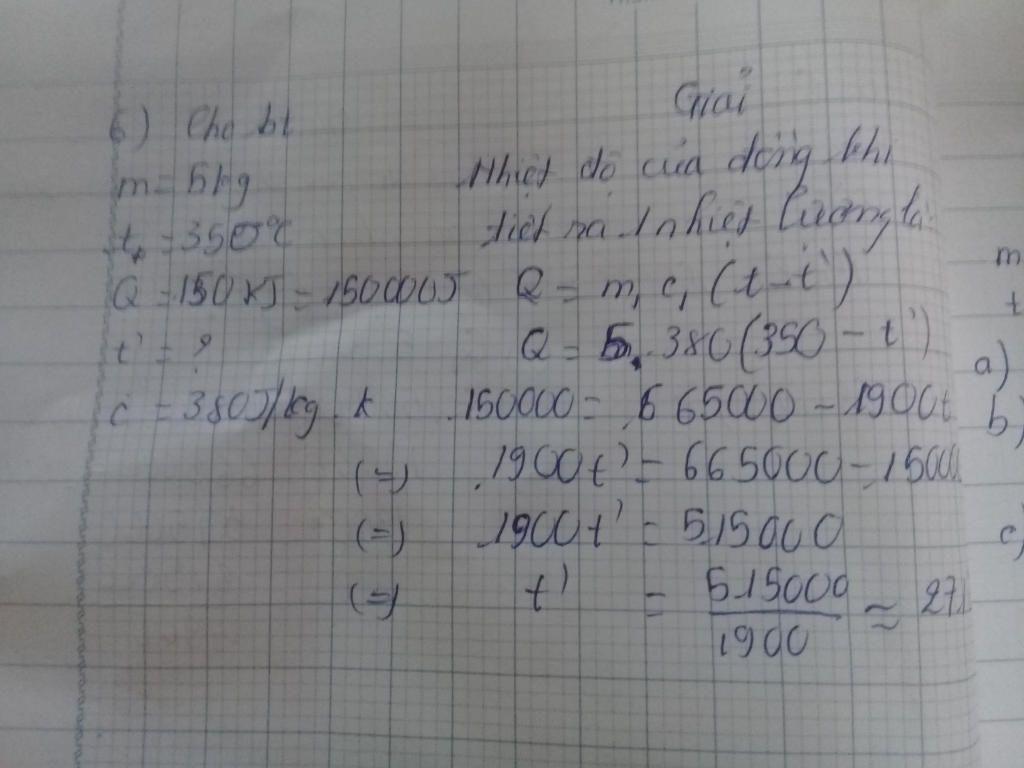 6) Cho bt
m = 5kg
t₁ = 350°C
Q = 150 KJ = 150000J
t' = ?
c = 380J/kg.k
Giải
Nhiệt độ của đồng khi
tiết ra 1 nhiệt lượng là
Q = m₁ c₁ (t - t')
Q = 5 . 380 (350 - t')
150000 = 665000 - 1900t
(=) 1900t' = 665000 - 15000
(=) 1900t' = 515000
(=) t' = 515000/1900 ≈ 271
m
t
a)
b)
c)